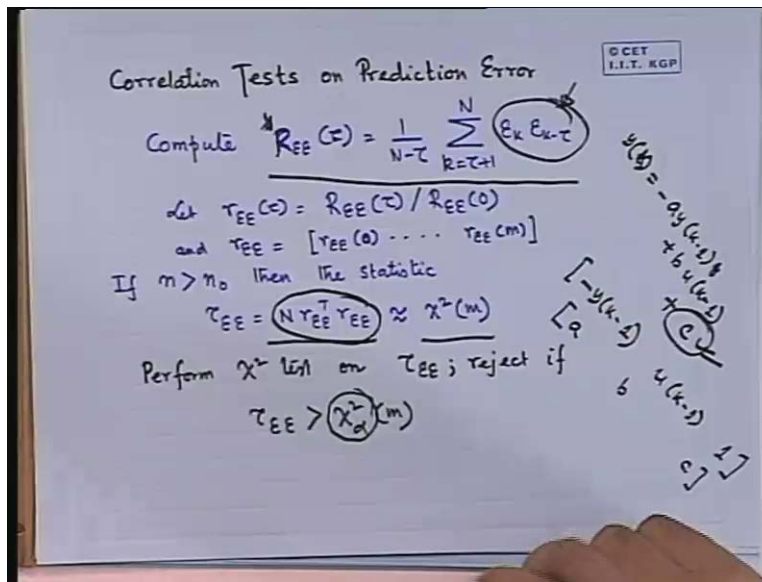 Correlation Tests on Prediction Error
© CET
I.I.T. KGP
Compute R_{εε}(τ) = \frac{1}{N-τ} \sum_{k=τ+1}^{N} ε_k ε_{k-τ}
Let r_{εε}(τ) = R_{εε}(τ) / R_{εε}(0)
and r_{εε} = [r_{εε}(0) .... r_{εε}(m)]
If n > n_0 then the statistic
τ_{εε} = N r_{εε}^T r_{εε} ≈ χ²(m)
Perform χ² test on τ_{εε}; reject if
τ_{εε} > χ²_α (m)
= -ay(k-1)
+ b u(k-1)
+ c
[-y(k-1) u(k-1) 1]
[a b c]